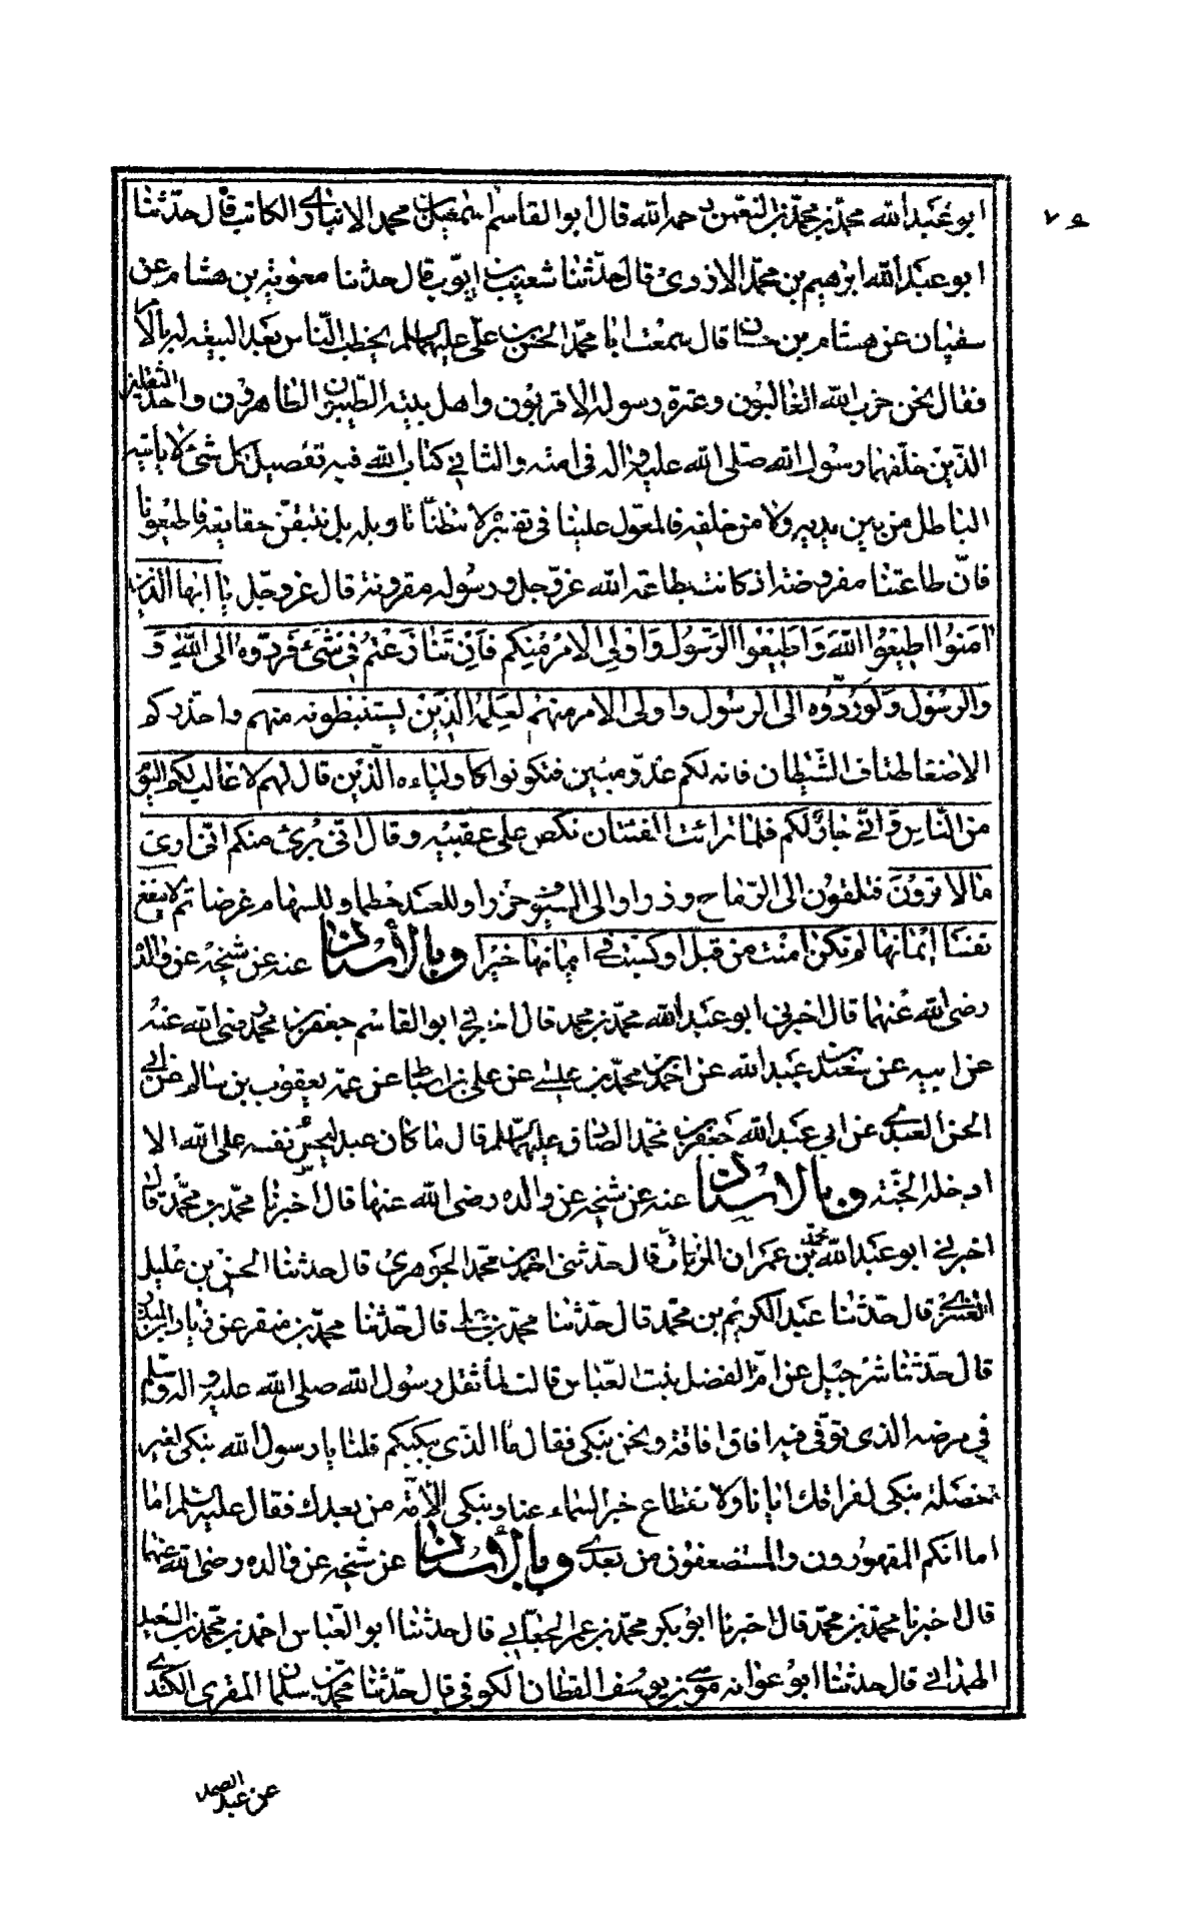 ٧٥
ابو عبد الله محمد بن محمد بن النعمن رحمه الله قال ابو القاسم اسمعيل بن محمد الانباري الكاتب قال حدثنا
ابو عبد الله ابرهيم بن محمد الازدي قال حدثنا شعيب بن ايوب قال حدثنا معوية بن هشام عن
سفيان عن هشام بن حسان قال سمعت ابا محمد الحسن بن علي عليهما السلم يخطب الناس بعد البيعة له بالامر
فقال نحن حزب الله الغالبون وعترة رسوله الاقربون واهل بيته الطيبون الطاهرون واحد الثقلين
الذين خلفهما رسول الله صلى الله عليه واله في امته والثاني كتاب الله فيه تفصيل كل شئ لا ياتيه
الباطل من بين يديه ولا من خلفه فالمعول علينا في تفسيره لا نتظنا تاويله بل نتيقن حقايقه فاطيعونا
فان طاعتنا مفروضة اذ كانت بطاعة الله عز وجل ورسوله مقرونة قال عز وجل يا ايها الذين
امنوا اطيعوا الله واطيعوا الرسول واولي الامر منكم فان تنازعتم في شئ فردوه الى الله و
والرسول ولو ردوه الى الرسول واولى الامر منهم لعلمه الذين يستنبطونه منهم واحذركم
الاصغا لهتاف الشيطان فانه لكم عدو مبين فتكونوا كاولياءه الذين قال لهم لا غالب لكم اليوم
من الناس واني جار لكم فلما ترائت الفئتان نكص على عقبيه وقال اني برئ منكم اني ارى
ما لا ترون فتلقون الى الرماح وزرا والى السيوف جزرا وللعمد حطما وللسهام غرضا ثم لا ينفع
نفسا ايمانها لم تكن امنت من قبل او كسبت في ايمانها خيرا وبالاسناد عنه عن شيخه عن والده
رضى الله عنهما قال اخبرني ابو عبد الله محمد بن محمد قال اخبرني ابو القاسم جعفر بن محمد رضى الله عنه
عن ابيه عن سعد بن عبد الله عن احمد بن محمد بن عيسى عن علي بن اسباط عن عمه يعقوب بن سالم عن ابي
الحسن العبدي عن ابي عبد الله جعفر بن محمد الصادق عليهما السلم قال ما كان عبد ليحبس نفسه على الله الا
ادخله الجنة وبالاسناد عنه عن شيخه عن والده رضى الله عنهما قال اخبرنا محمد بن محمد قال
اخبرني ابو عبد الله محمد بن عمران المرزباني قال حدثنى احمد بن محمد الجوهري قال حدثنا الحسن بن عليل
العنزي قال حدثنا عبد الكريم بن محمد قال حدثنا محمد بن علي قال حدثنا محمد بن منقر عن زياد بن المنذر
قال حدثنا شرجيل عن ام الفضل بنت العباس قالت لما ثقل رسول الله صلى الله عليه واله وسلم
في مرضه الذي توفى فيه افاق افاقة ونحن نبكى فقال ما الذي يبكيكم قلنا يا رسول الله نبكى لغير
خصلة نبكى لفراقك ايانا ولانقطاع خبر السماء عنا ونبكى الامة من بعدك فقال عليه السلم اما
اما انكم المقهورون والمستضعفون من بعدي وبالاسناد عن شيخه عن والده رضى الله عنهما
قال اخبرنا محمد بن محمد قال اخبرنا ابو بكر محمد بن عمر الجعابي قال حدثنا ابو العباس احمد بن محمد بن سعيد
الهمداني قال حدثنا ابو عوانه موسى بن يوسف القطان الكوفي قال حدثنا محمد بن سليمان المقرى الكندي
عن عبد الصمد